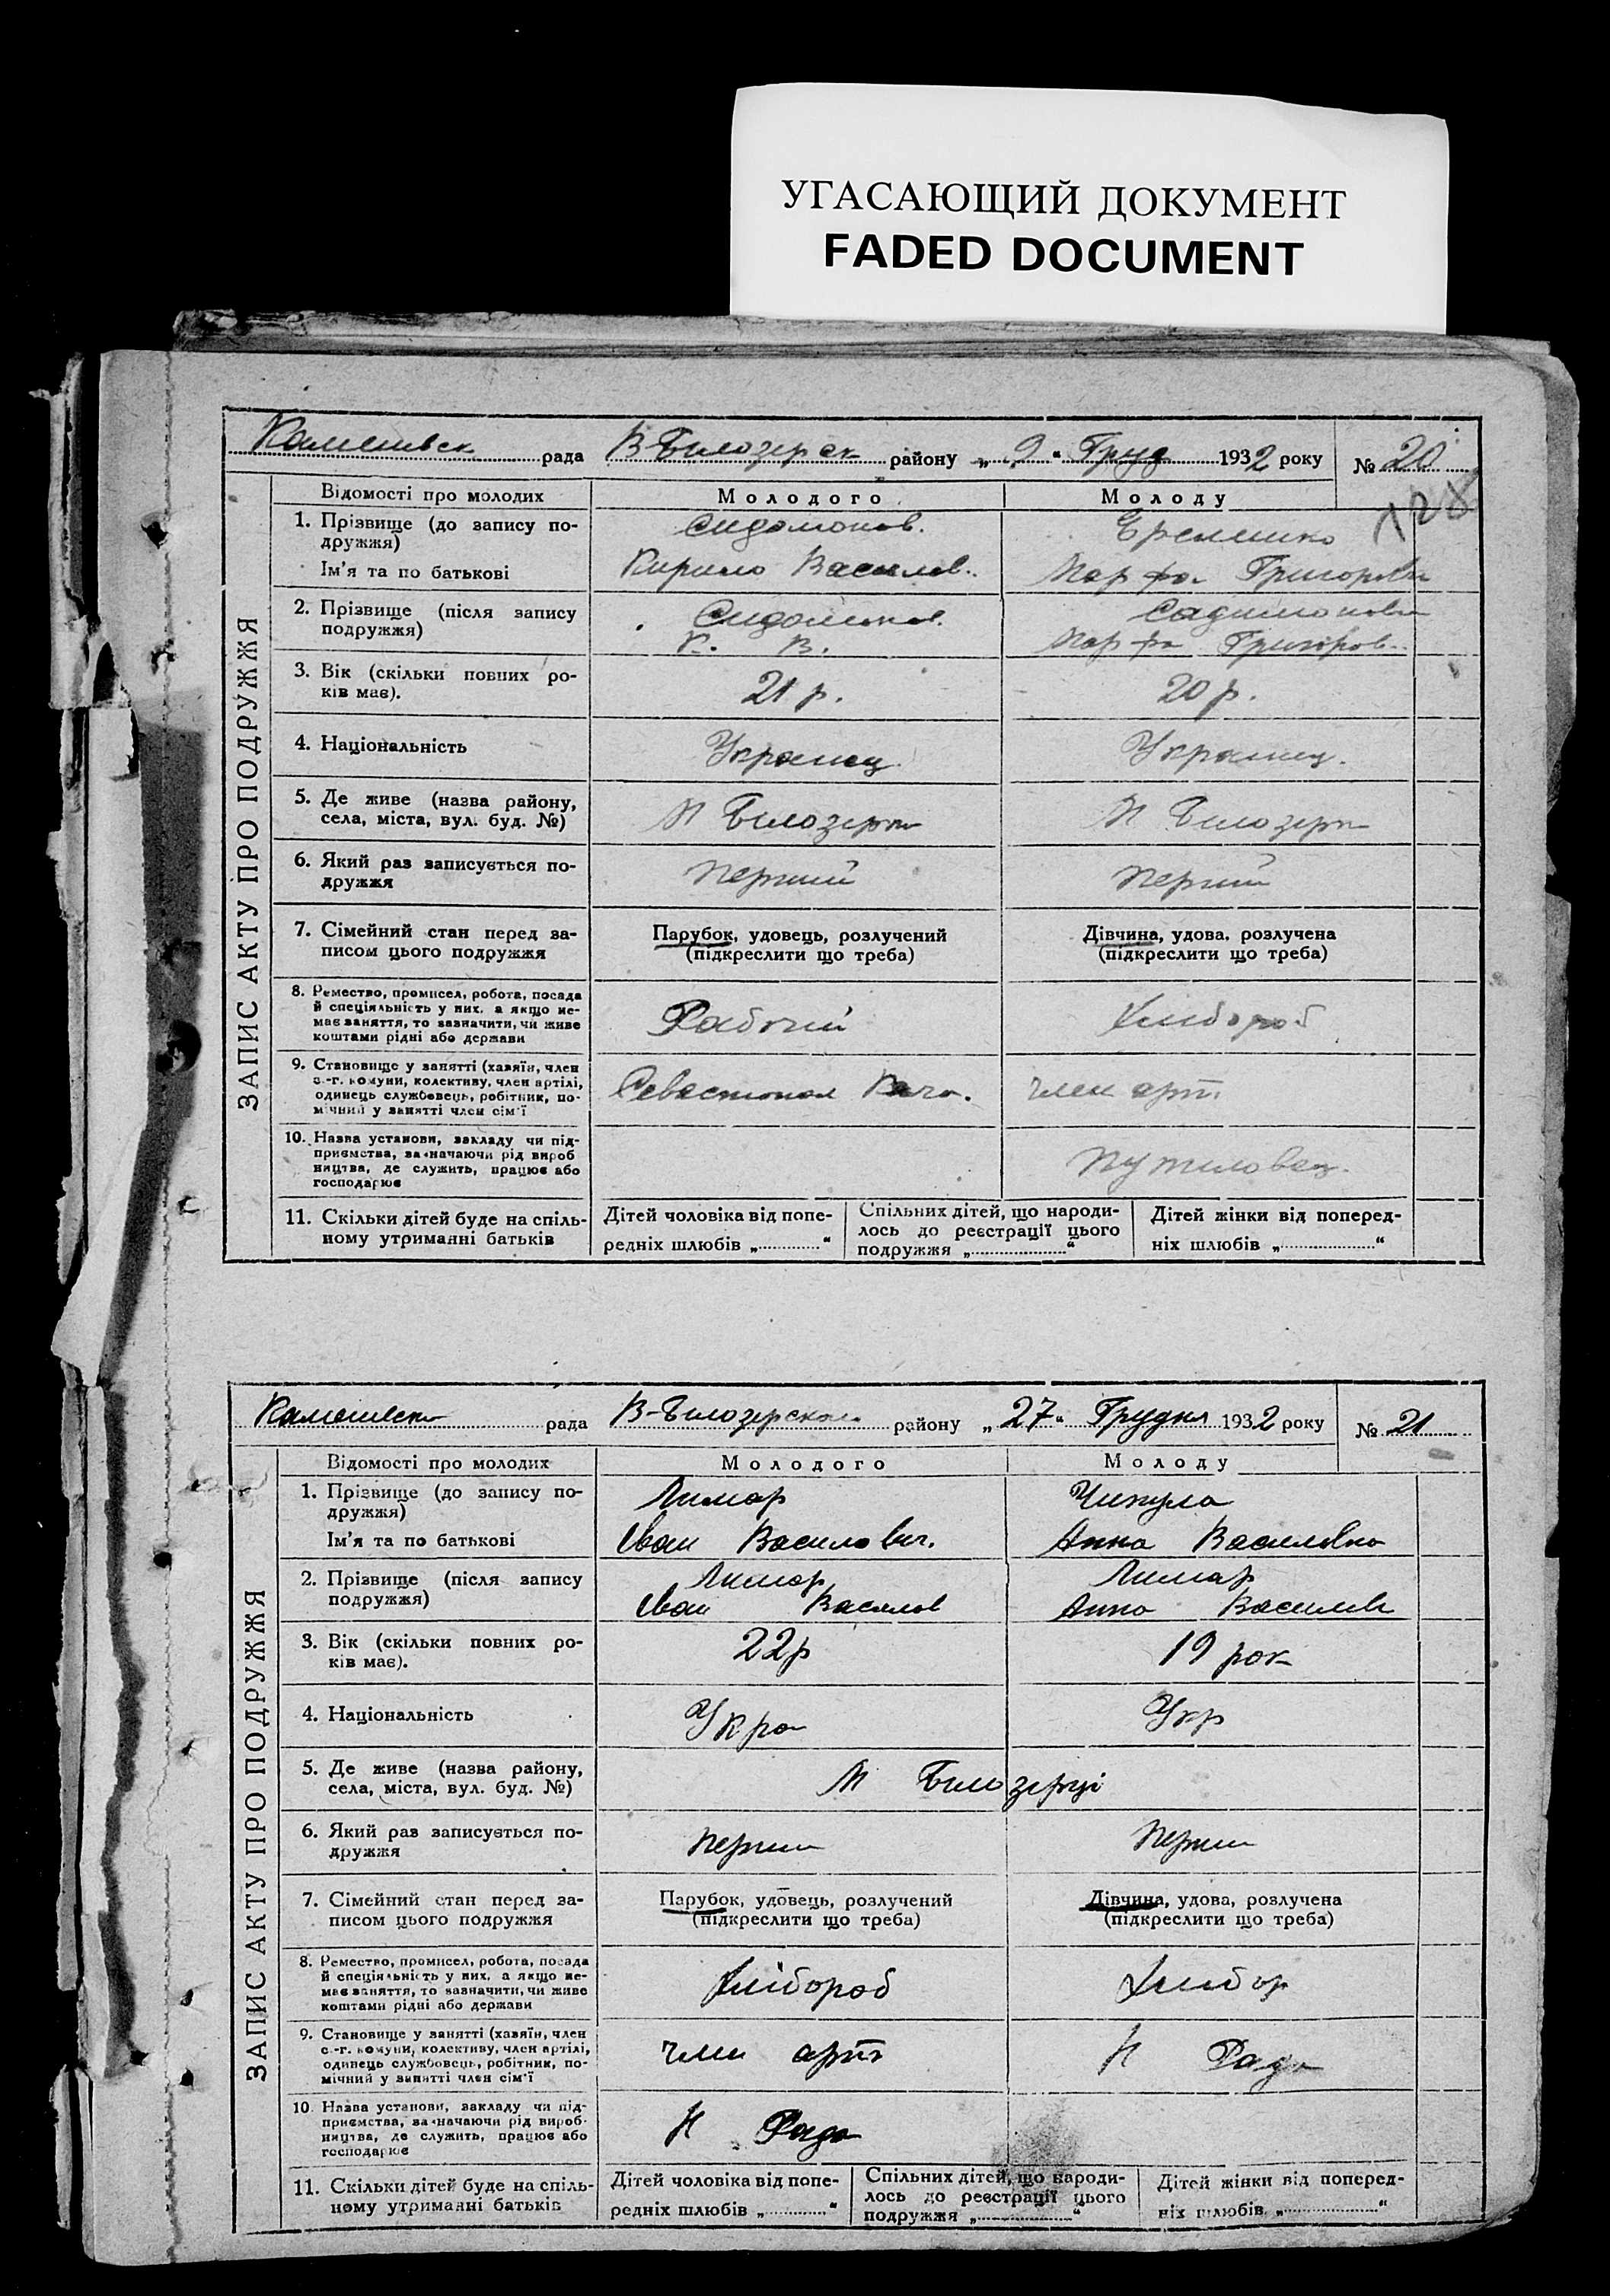 УГАСАЮЩИЙ ДОКУМЕНТ
FADED DOCUMENT
рада В-Билозерск району „ 9 “ Груд 1932 року № 20
128
ЗАПИС АКТУ ПРО ПОДРУЖЖЯ
Відомості про молодих Молодого Молоду
1. Прізвище (до запису по-
дружжя)
Ім'я та по батькові Кирило Василов. Марфа
2. Прізвище (після запису
подружжя)
К. В. Марфа Григоров.
3. Вік (скільки повних ро-
ків має). 21 р. 20 р.
4. Національність Украинец Украинец.
5. Де живе (назва району,
села, міста, вул. буд. №) М Билозерка М Билозерка
6. Який раз записується по-
дружжя перший перший
7. Сімейний стан перед за-
писом цього подружжя
Парубок, удовець, розлучений
(підкреслити що треба)
Дівчина, удова, розлучена
(підкреслити що треба)
8. Ремество, промисел, робота, посада
й спеціяльність у них, а якщо не-
має заняття, то зазначити, чи живе
коштами рідні або держави
Рабочий Хлибороб
9. Становище у занятті (хазяїн, член
с.-г. комуни, колективу, член артілі,
одинець службовець, робітник, по-
мічний у занятті член сім'ї
Севастопол член арт.
10. Назва установи, закладу чи під-
приємства, зазначаючи рід вироб
ництва, де служить, працює або
господарює
Путиловец.
11. Скільки дітей буде на спіль-
ному утриманні батьків
Дітей чоловіка від попе-
редніх шлюбів „............“
Спільних дітей, що народи-
лось до реєстрації цього
подружжя „............“
Дітей жінки від поперед-
ніх шлюбів „............“
рада В-Билозерском району „ 27 “ Грудня 1932 року № 21
ЗАПИС АКТУ ПРО ПОДРУЖЖЯ
Відомості про молодих Молодого Молоду
1. Прізвище (до запису по-
дружжя) Лимар
Ім'я та по батькові Іван Василович. Анна Василовна
2. Прізвище (після запису Лимар Лимар
подружжя) Іван Василов Анна
3. Вік (скільки повних ро-
ків має). 22 р 19 рок
4. Національність Укра Укр
5. Де живе (назва району,
села, міста, вул. буд. №) М Билозерці
6. Який раз записується по-
дружжя
7. Сімейний стан перед за-
писом цього подружжя
Парубок, удовець, розлучений
(підкреслити що треба)
Дівчина, удова, розлучена
(підкреслити що треба)
8. Ремество, промисел, робота, посада
й спеціяльність у них, а якщо не-
має заняття, то зазначити, чи живе
коштами рідні або держави
Хлібороб Хлибор
9. Становище у занятті (хазяїн, член
с.-г. комуни, колективу, член артілі,
одинець службовець, робітник, по-
мічний у занятті член сім'ї
член арт Н Рада
10. Назва установи, закладу чи під-
приємства, зазначаючи рід вироб-
ництва, де служить, працює або
господарює
Н Рада
11. Скільки дітей буде на спіль-
ному утриманні батьків
Дітей чоловіка від попе-
редніх шлюбів „............“
Спільних дітей, що народи-
лось до реєстрації цього
подружжя „............“
Дітей жінки від поперед-
ніх шлюбів „............“